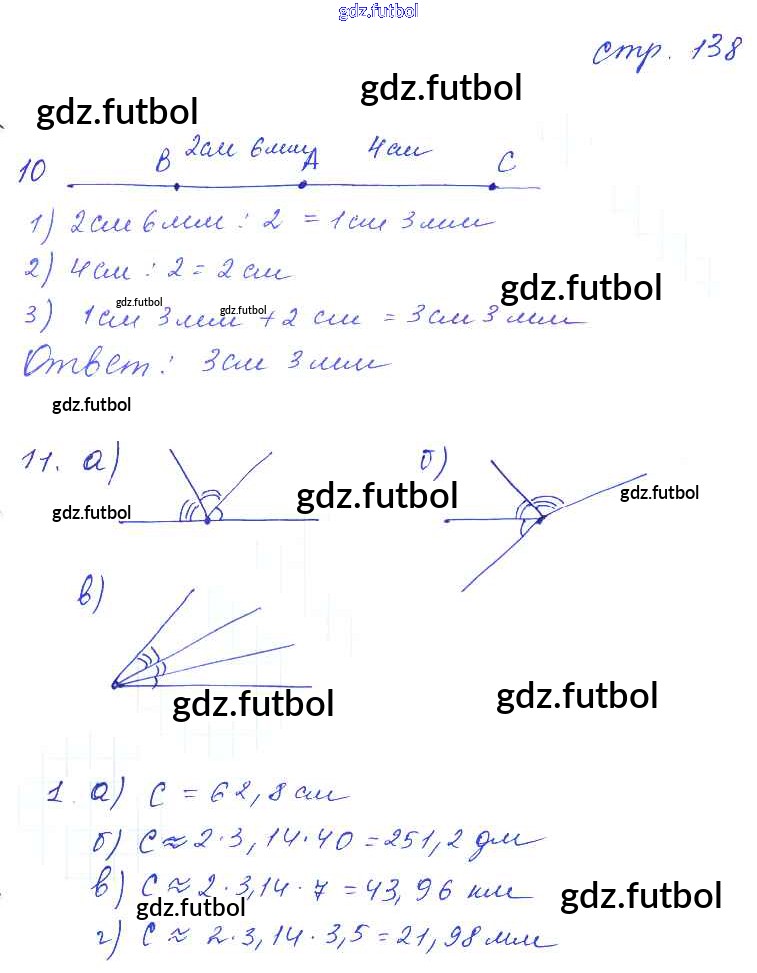 gdz.futbol
стр. 138
gdz.futbol
gdz.futbol
10
B 2см 6мм A 4см C
1) 2см 6мм : 2 = 1см 3мм
2) 4см : 2 = 2 см
gdz.futbol
3) 1см 3мм + 2 см = 3см 3мм
gdz.futbol
gdz.futbol
Ответ: 3см 3мм
gdz.futbol
11. а) б)
gdz.futbol
gdz.futbol
gdz.futbol
в)
gdz.futbol
gdz.futbol
1. а) C = 62,8 см
б) C ≈ 2·3,14·40 = 251,2 дм
в) C ≈ 2·3,14·7 = 43,96 км
gdz.futbol
gdz.futbol
г) C ≈ 2·3,14·3,5 = 21,98 мм